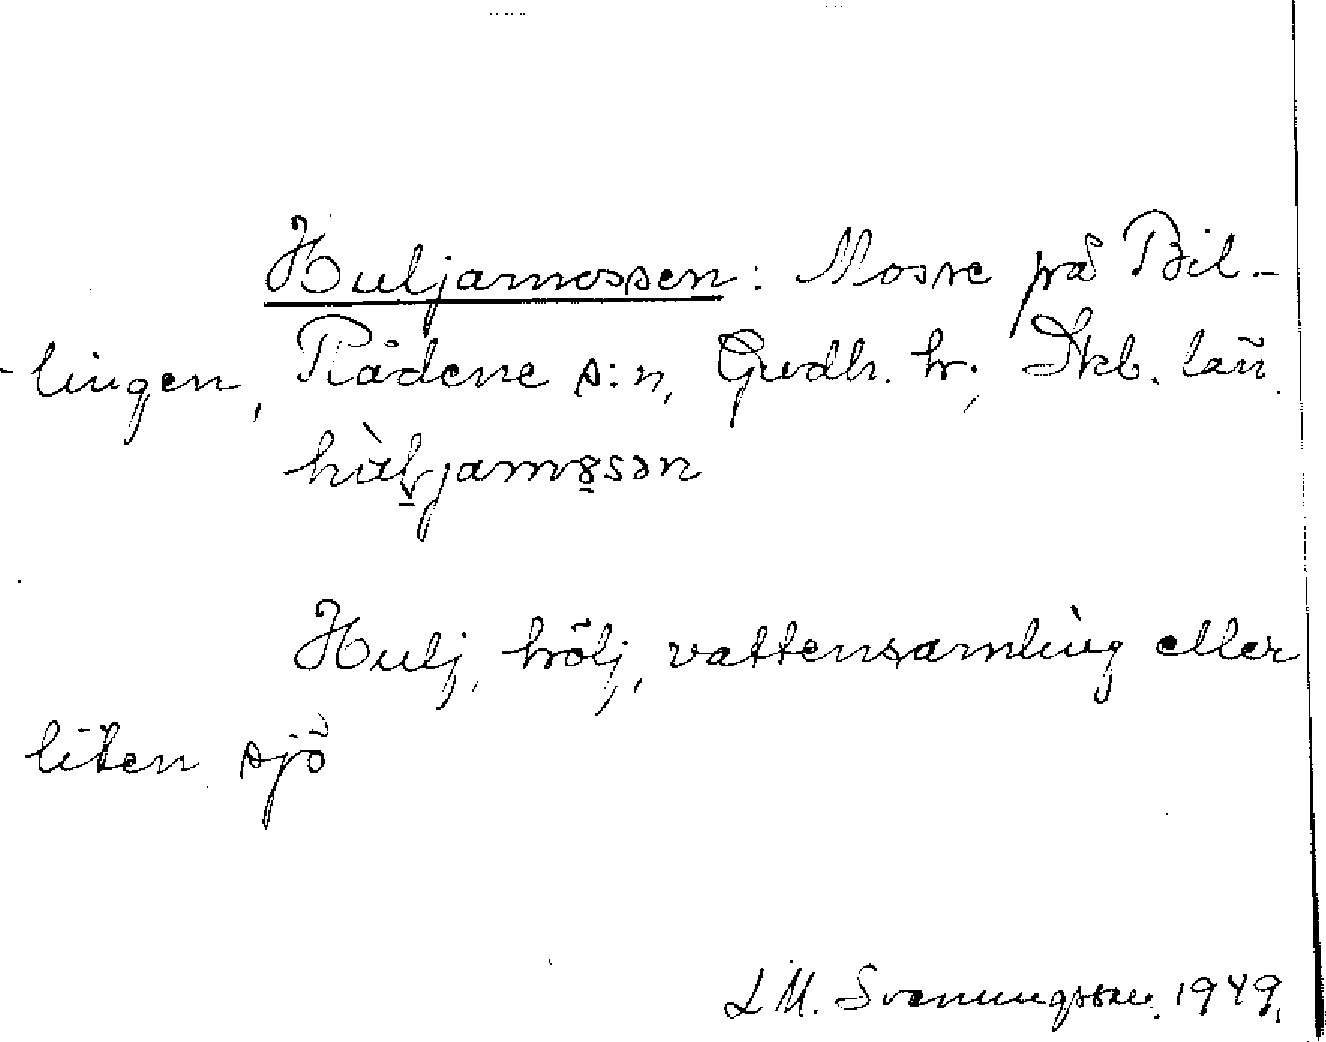 Huljamossen: Mosse på Bil-
lingen, Rådene s:n, Gudh. hr, Skb. län.
Hulj, hölj, vattensamling eller
liten sjö
L M. Svenungsson. 1949.